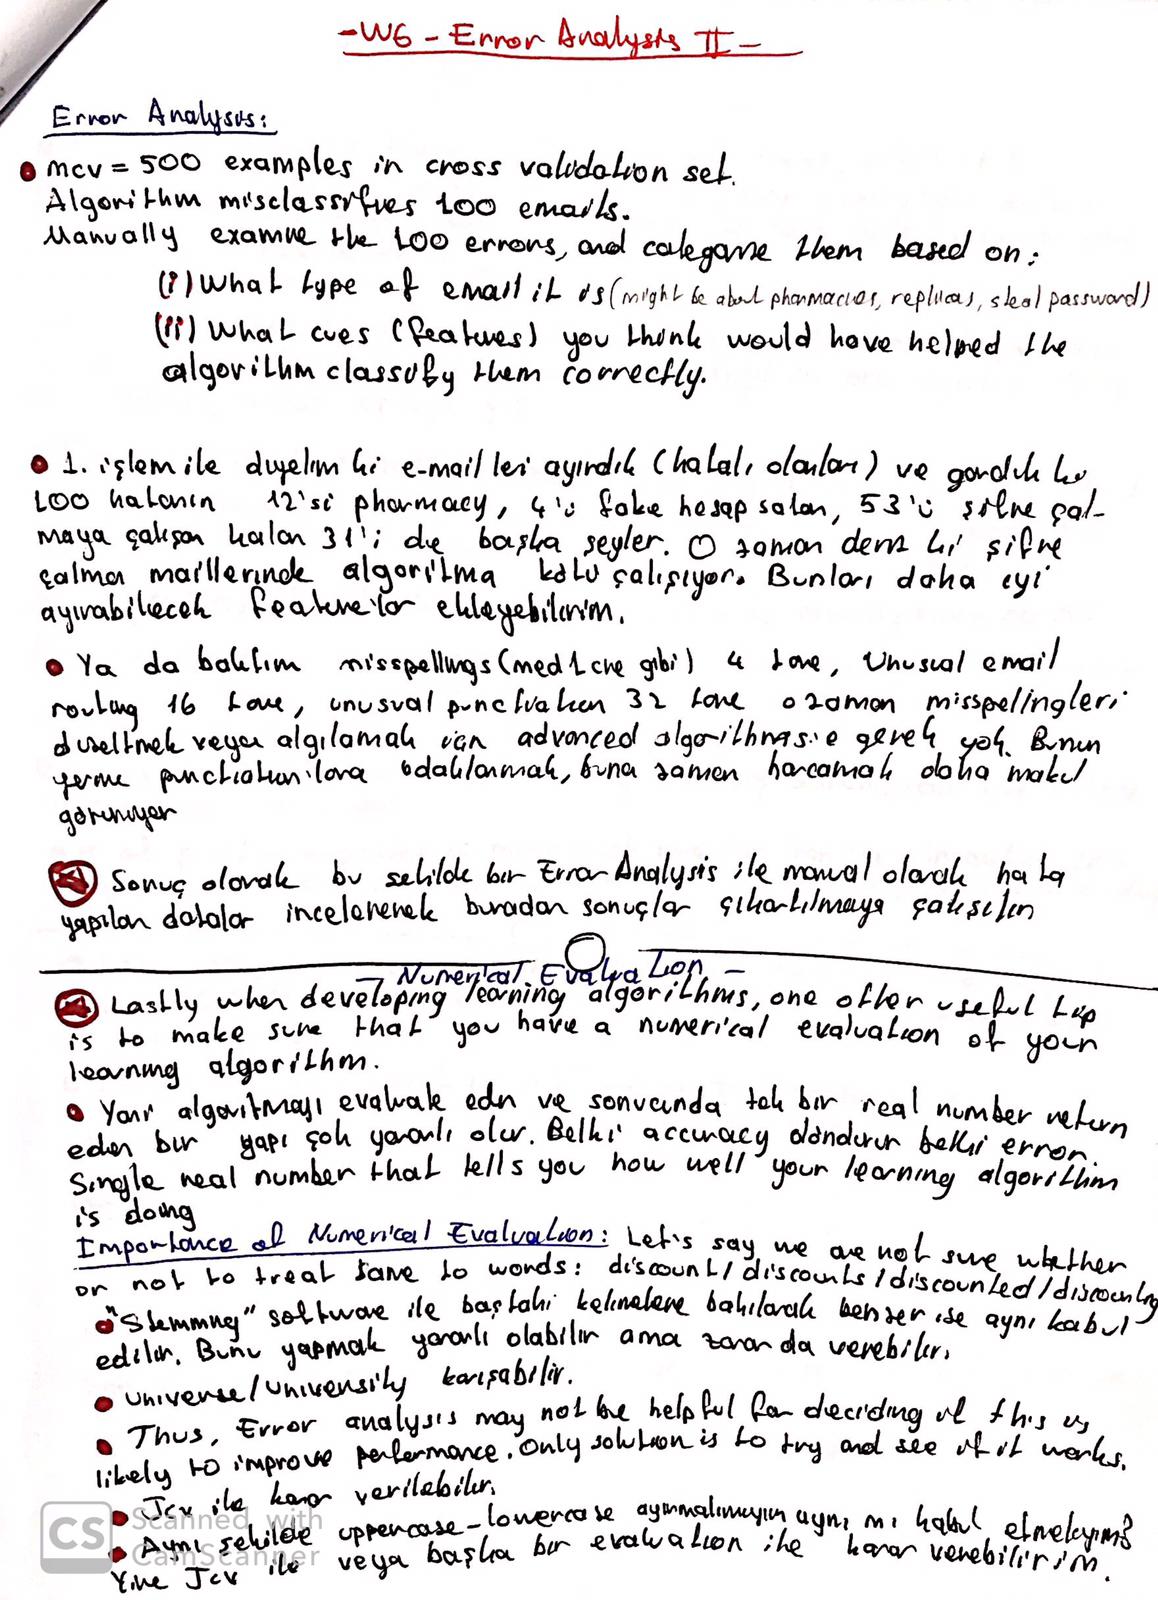 -W6 - Error Analysis II -
Error Analysis:
mcv = 500 examples in cross validation set.
Algorithm misclassifies 100 emails.
Manually examine the 100 errors, and categorize them based on:
(i) What type of email it is (might be about pharmacies, replicas, steal password)
(ii) What cues (features) you think would have helped the
algorithm classify them correctly.
1. işlem ile diyelim ki e-mail leri ayırdık (hatalı olanları) ve gördük ki
100 hatanın 12'si pharmacy, 4'ü fake hesap satan, 53'ü şifre çal-
maya çalışan kalan 31'i de başka şeyler. O zaman deriz ki şifre
çalma maillerinde algoritma kötü çalışıyor. Bunları daha iyi
ayırabilecek feature'lar ekleyebilirim.
Ya da baktım misspellings (med1cine gibi) 4 tane, Unusual email
routing 16 tane, unusual punctuation 32 tane o zaman misspellingleri
düzeltmek veya algılamak için advanced algorithms'e gerek yok. Bunun
yerine punctuation'lara odaklanmak, buna zaman harcamak daha makul
görünüyor
Sonuç olarak bu şekilde bir Error Analysis ile manual olarak hata
yapılan datalar incelenerek buradan sonuçlar çıkartılmaya çalışılır
- Numerical Evaluation -
Lastly when developing learning algorithms, one other useful tip
is to make sure that you have a numerical evaluation of your
learning algorithm.
Yani algoritmayı evaluate eden ve sonucunda tek bir real number return
eden bir yapı çok yararlı olur. Belki accuracy döndürür belki error.
Single real number that tells you how well your learning algorithm
is doing
Importance of Numerical Evaluation: Let's say we are not sure whether
or not to treat same to words: discount / discounts / discounted / discounting
"Stemming" software ile baştaki kelimelere bakılarak benzer ise aynı kabul
edilir. Bunu yapmak yararlı olabilir ama zarar da verebilir.
universe / university karışabilir.
Thus, Error analysis may not be helpful for deciding if this is
likely to improve performance. Only solution is to try and see if it works.
Jcv ile karar verilebilir.
Aynı şekilde uppercase-lowercase ayırmalı mıyım aynı mı kabul etmeliyim?
Yine Jcv ile veya başka bir evaluation ile karar verebilirim.
CS Scanned with
CamScanner